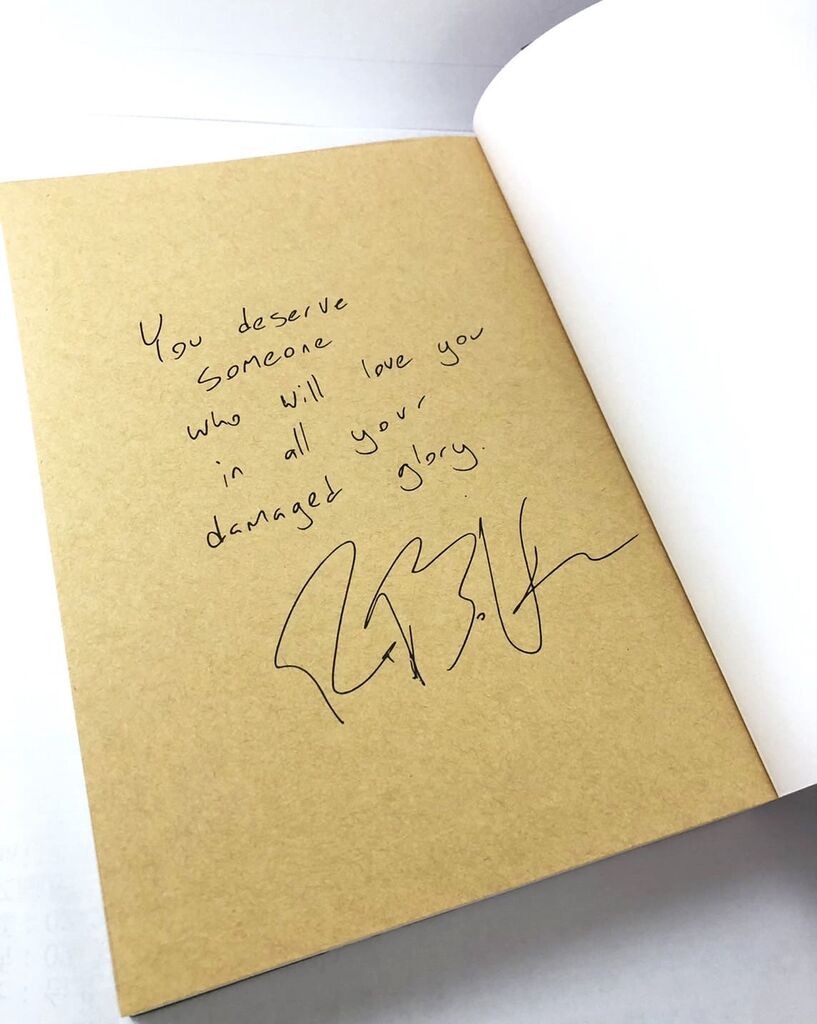 You deserve
someone
who will love you
in all your
damaged glory.